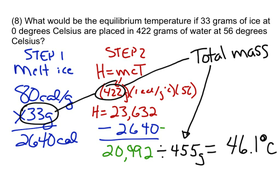 (8) What would be the equilibrium temperature if 33 grams of ice at
0 degrees Celsius are placed in 422 grams of water at 56 degrees
Celsius?
STEP 1
Melt ice
80cal/g
x 33g
2640cal
STEP 2
H=mcT
(422g)(1cal/g°c)(56)
H= 23,632
- 2640
20,992 ÷ 455g = 46.1°c
Total mass